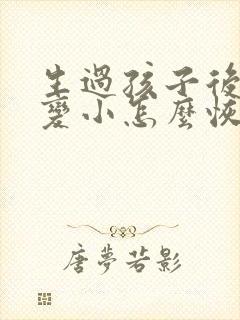 生過孩子後
變小怎麼恢
唐夢若影